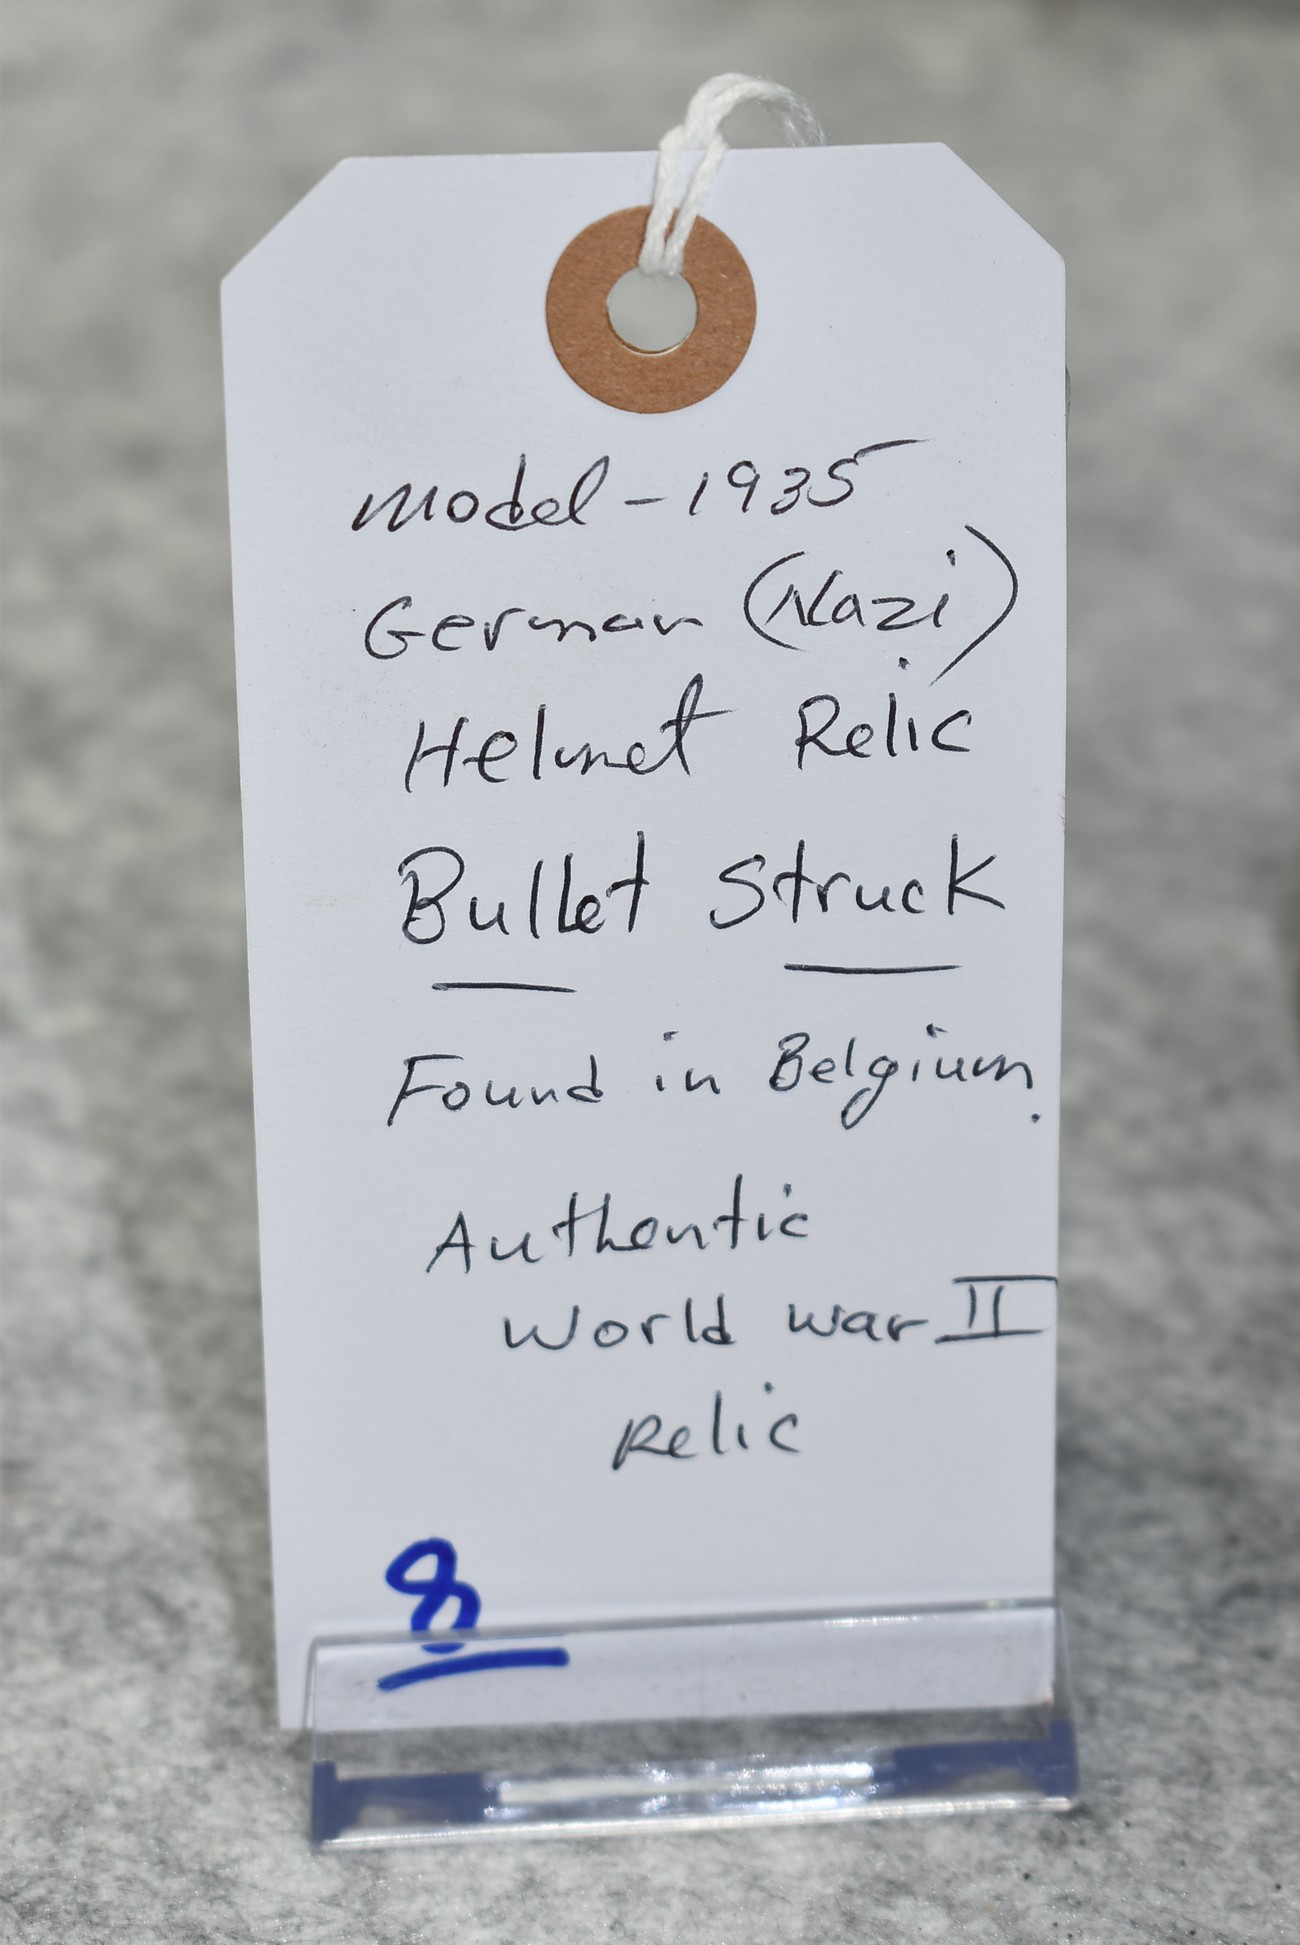 Model - 1935
German (Nazi)
Helmet Relic
Bullet Struck
Found in Belgium.
Authentic
World War II
Relic
8